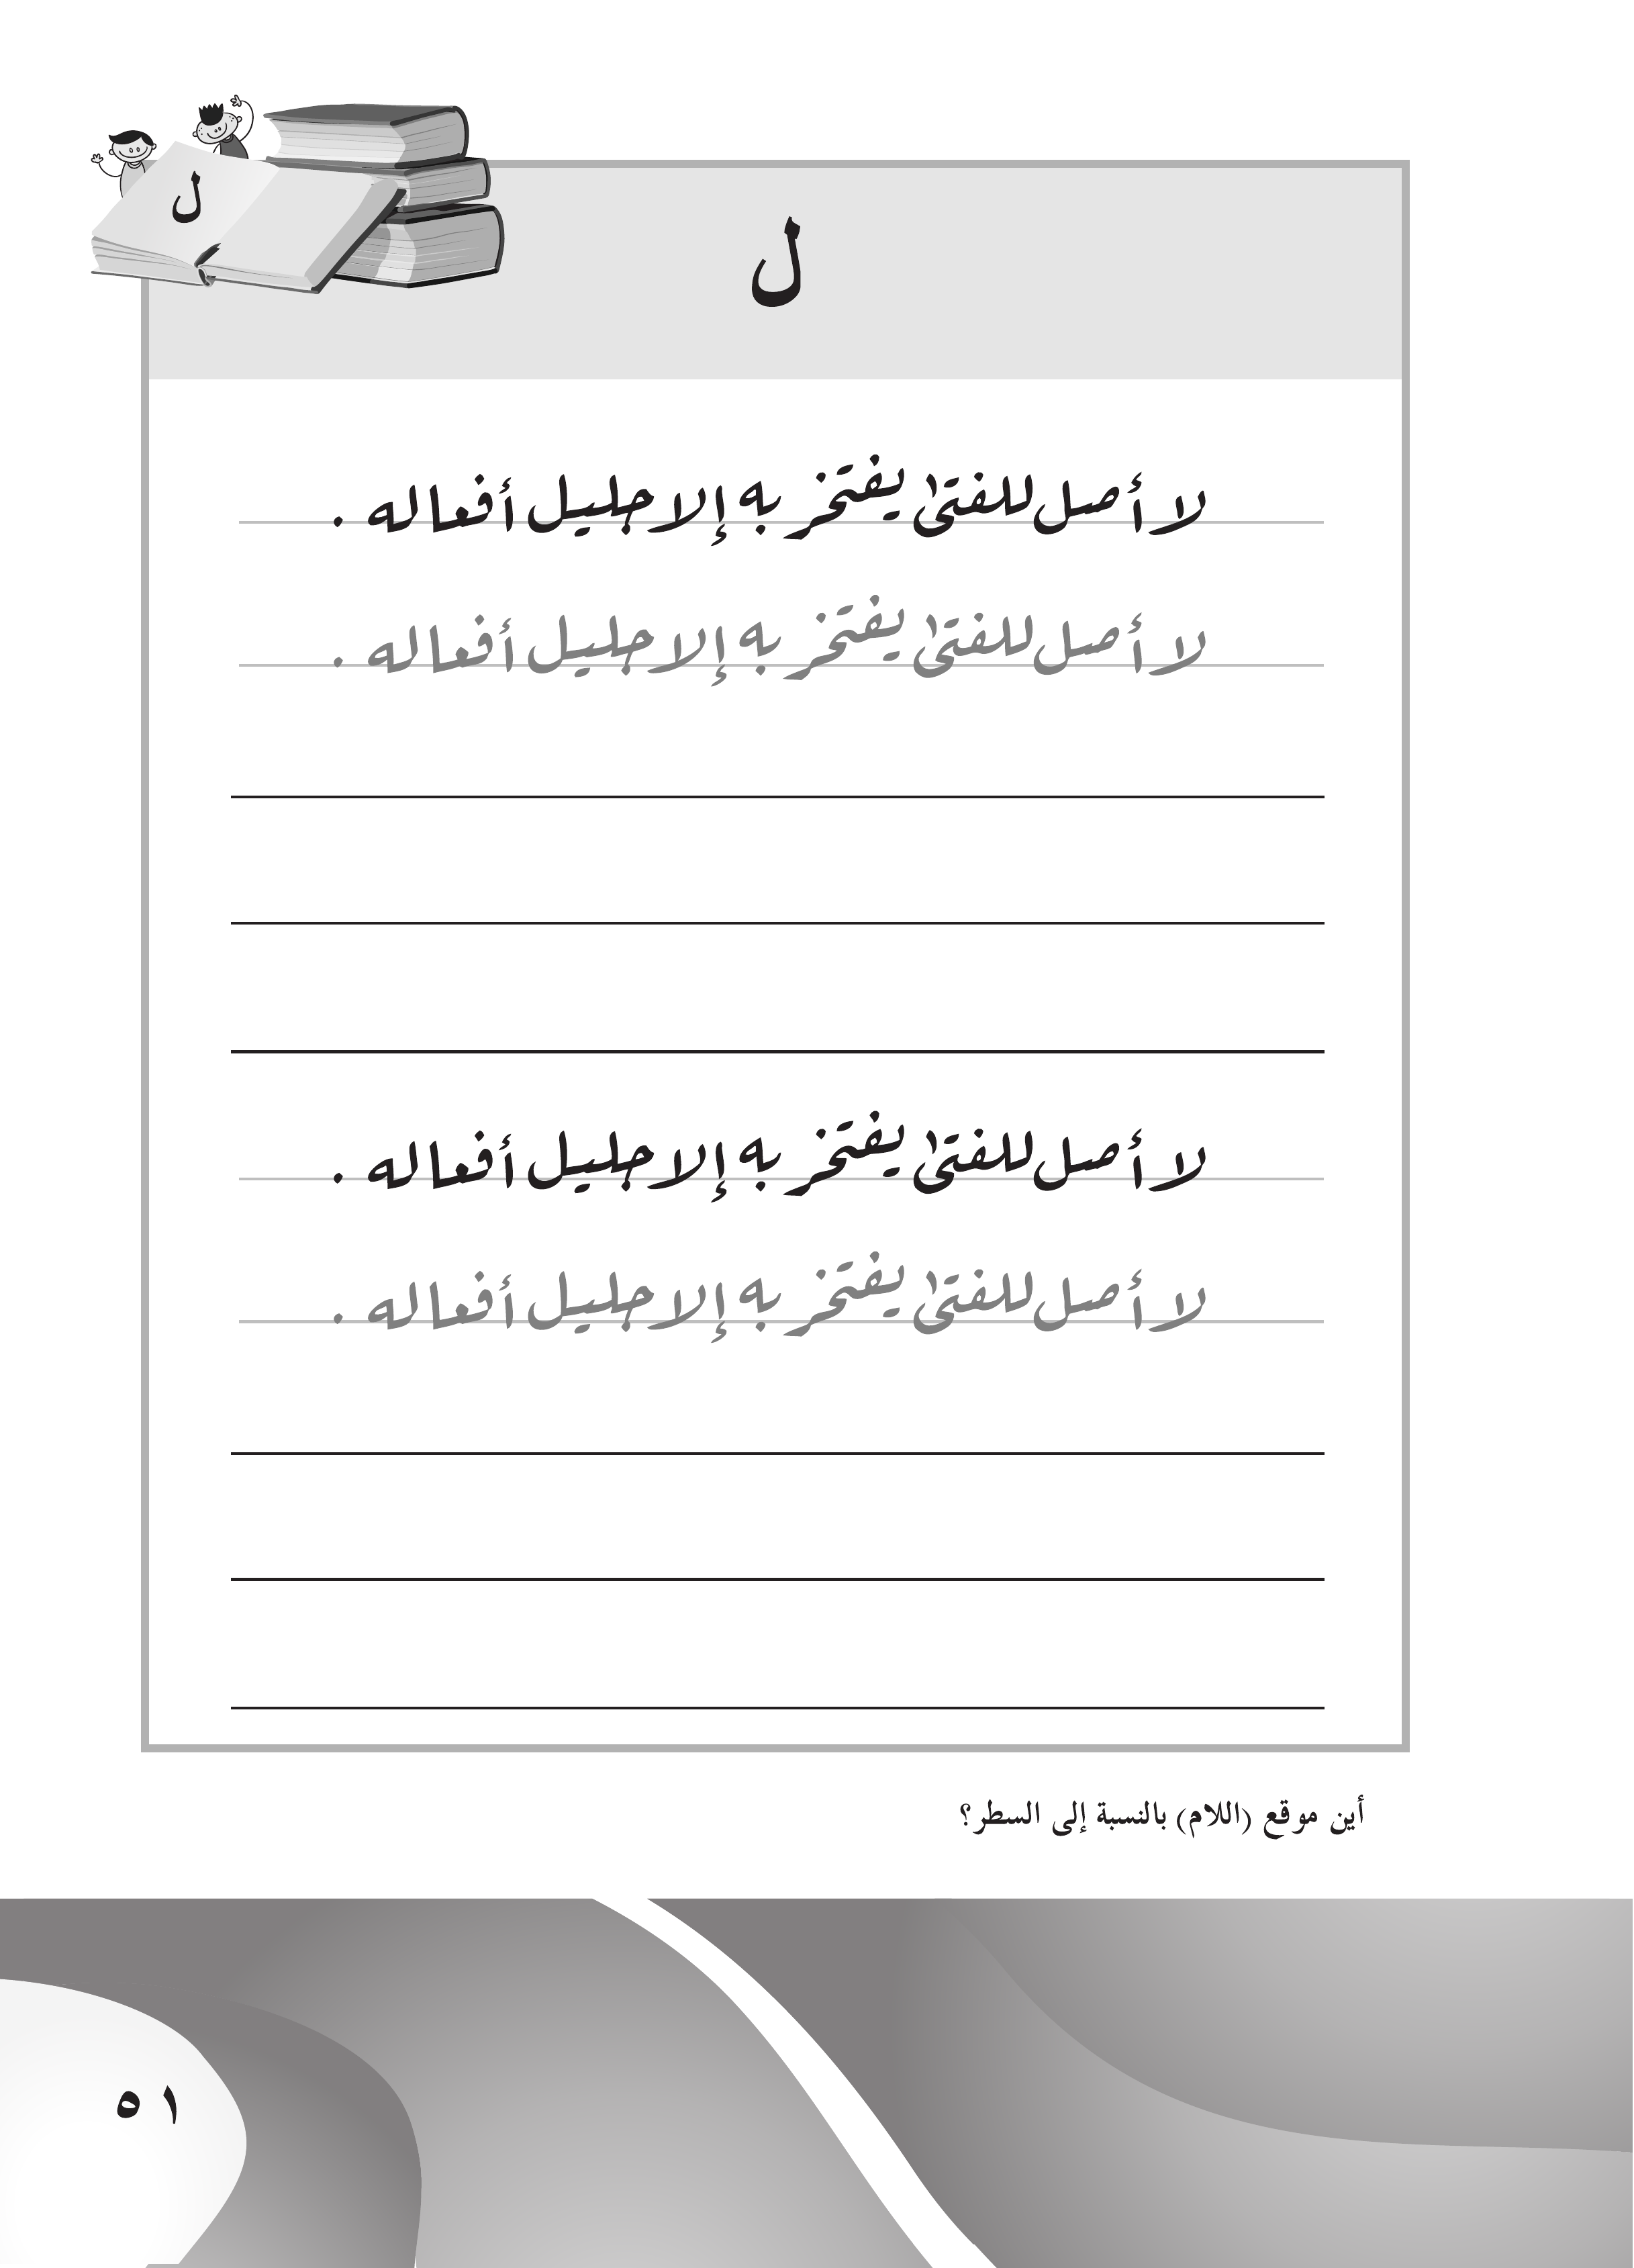 ل
ل
لا أصل للفتى يفتخر به إلا جليل أفعاله .
لا أصل للفتى يفتخر به إلا جليل أفعاله .
لا أصل للفتى يفتخر به إلا جليل أفعاله .
لا أصل للفتى يفتخر به إلا جليل أفعاله .
أين موقع (اللام) بالنسبة إلى السطر؟
٥١